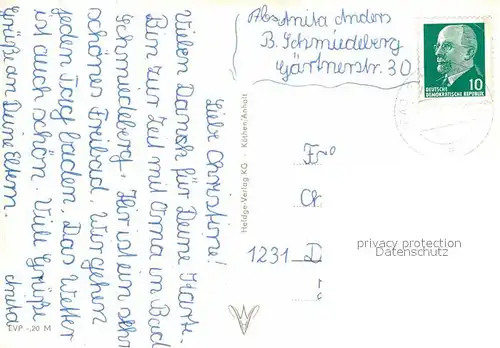 Liebe Christine!
Vielen Dank für Deine Karte.
Bin zur Zeit mit Oma im Bad
Schmiedeberg. Hier ist ein sehr
schönes Freibad. Wir gehen
jeden Tag baden. Das Wetter
ist auch schön. Viele Grüße
Grüße an Deine Eltern. Anita
EVP -,20 M
Heldge-Verlag KG · Köthen/Anhalt
Abs. Anita Anders
B. Schmiedeberg
Gärtnerstr. 30
10
DEUTSCHE
DEMOKRATISCHE REPUBLIK
Fr
1231 D
privacy protection
VRAMIS.COM